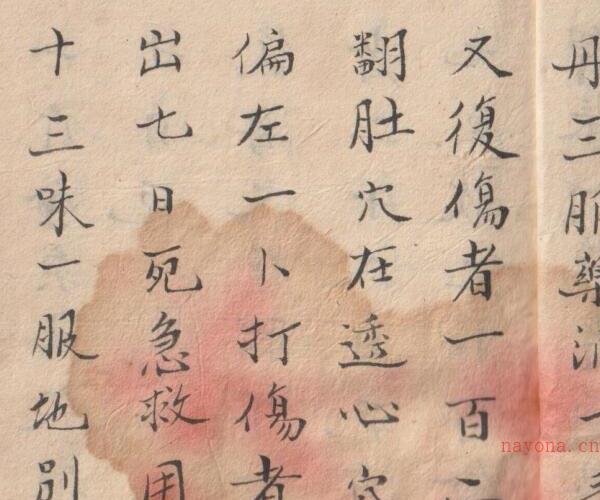 丹三服藥
又復傷者一百
翻肚穴在透心穴
偏左一卜打傷者
出七日死急救用
十三味一服地別
nayona.cn